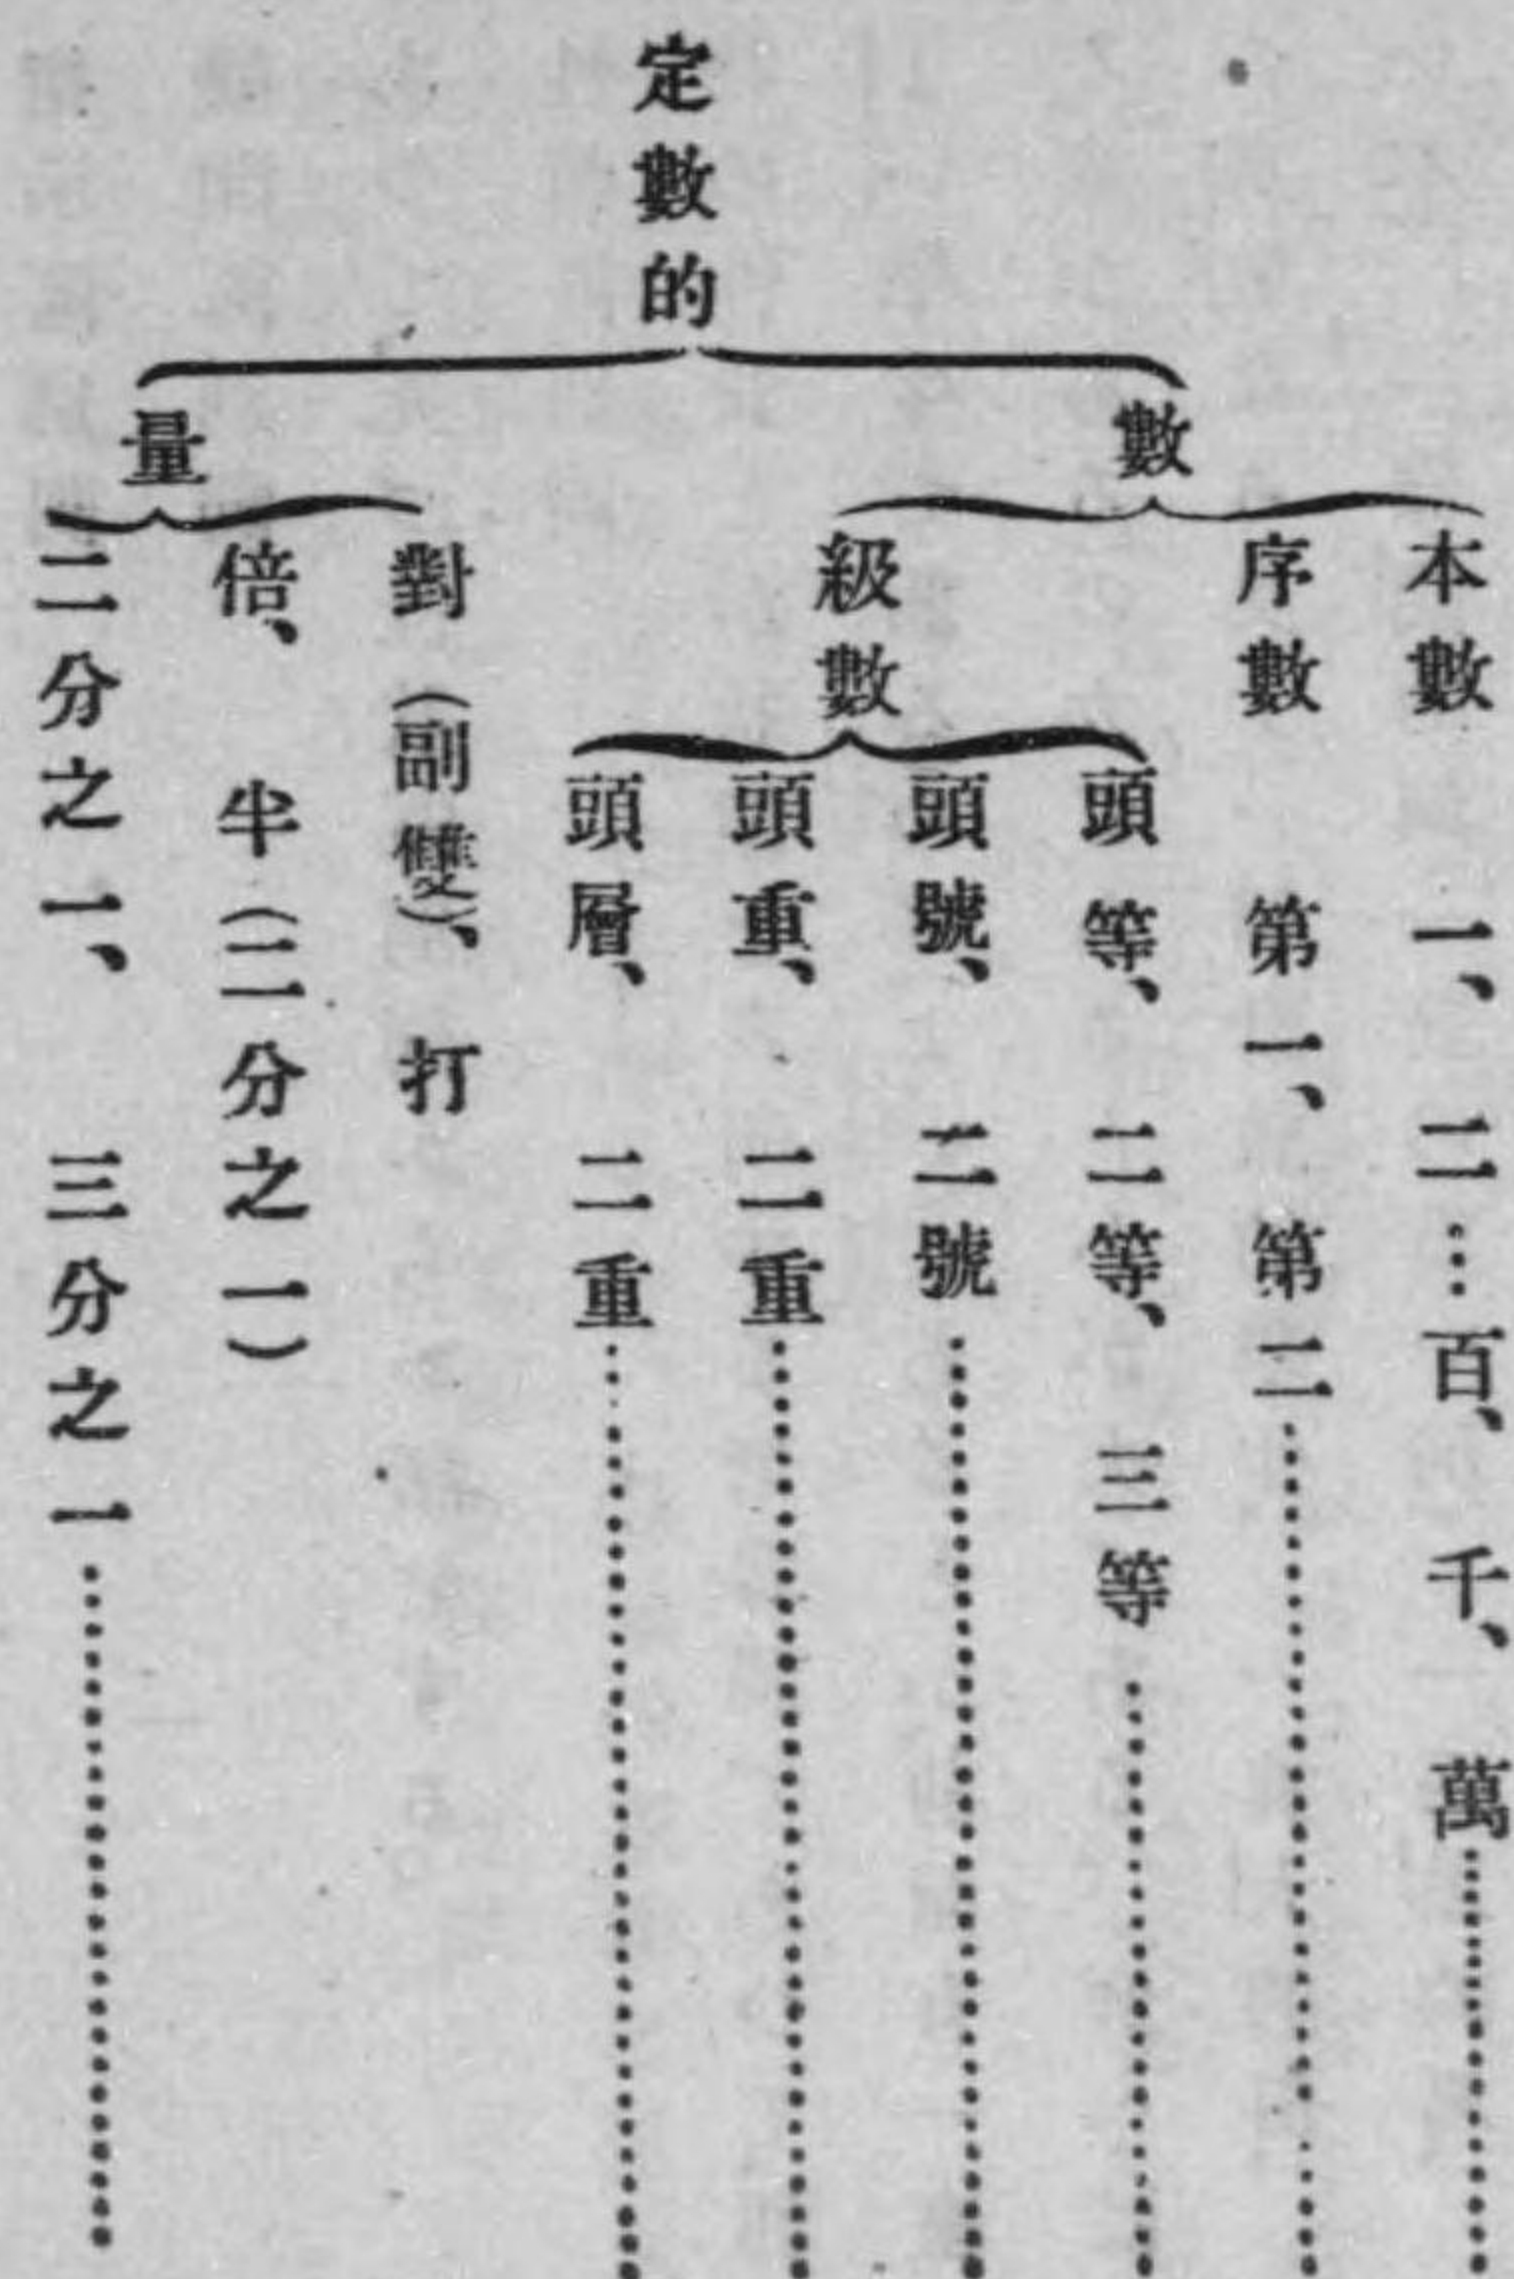 定數的
數
本數 一、二…百、千、萬……
序數 第一、第二……
級數
頭等、二等、三等……
頭號、二號……
頭重、二重……
頭層、二重……
量
對（副雙）、打
倍、半（二分之一）
二分之一、三分之一……